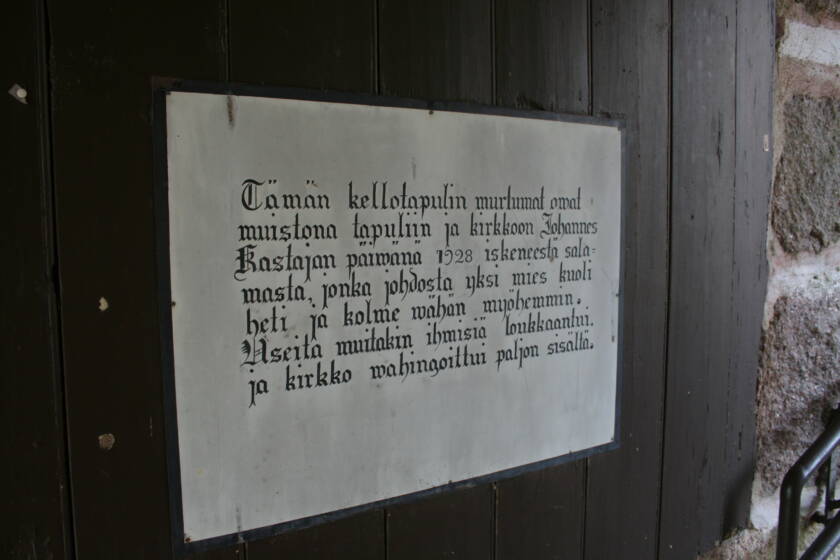 Tämän kellotapulin murtumat owat
muistona tapuliin ja kirkkoon Johannes
Kastajan päiwänä 1928 iskeneestä sala=
masta, jonka johdosta yksi mies kuoli
heti ja kolme wähän myöhemmin.
Useita muitakin ihmisiä loukkaantui.
ja kirkko wahingoittui paljon sisältä.